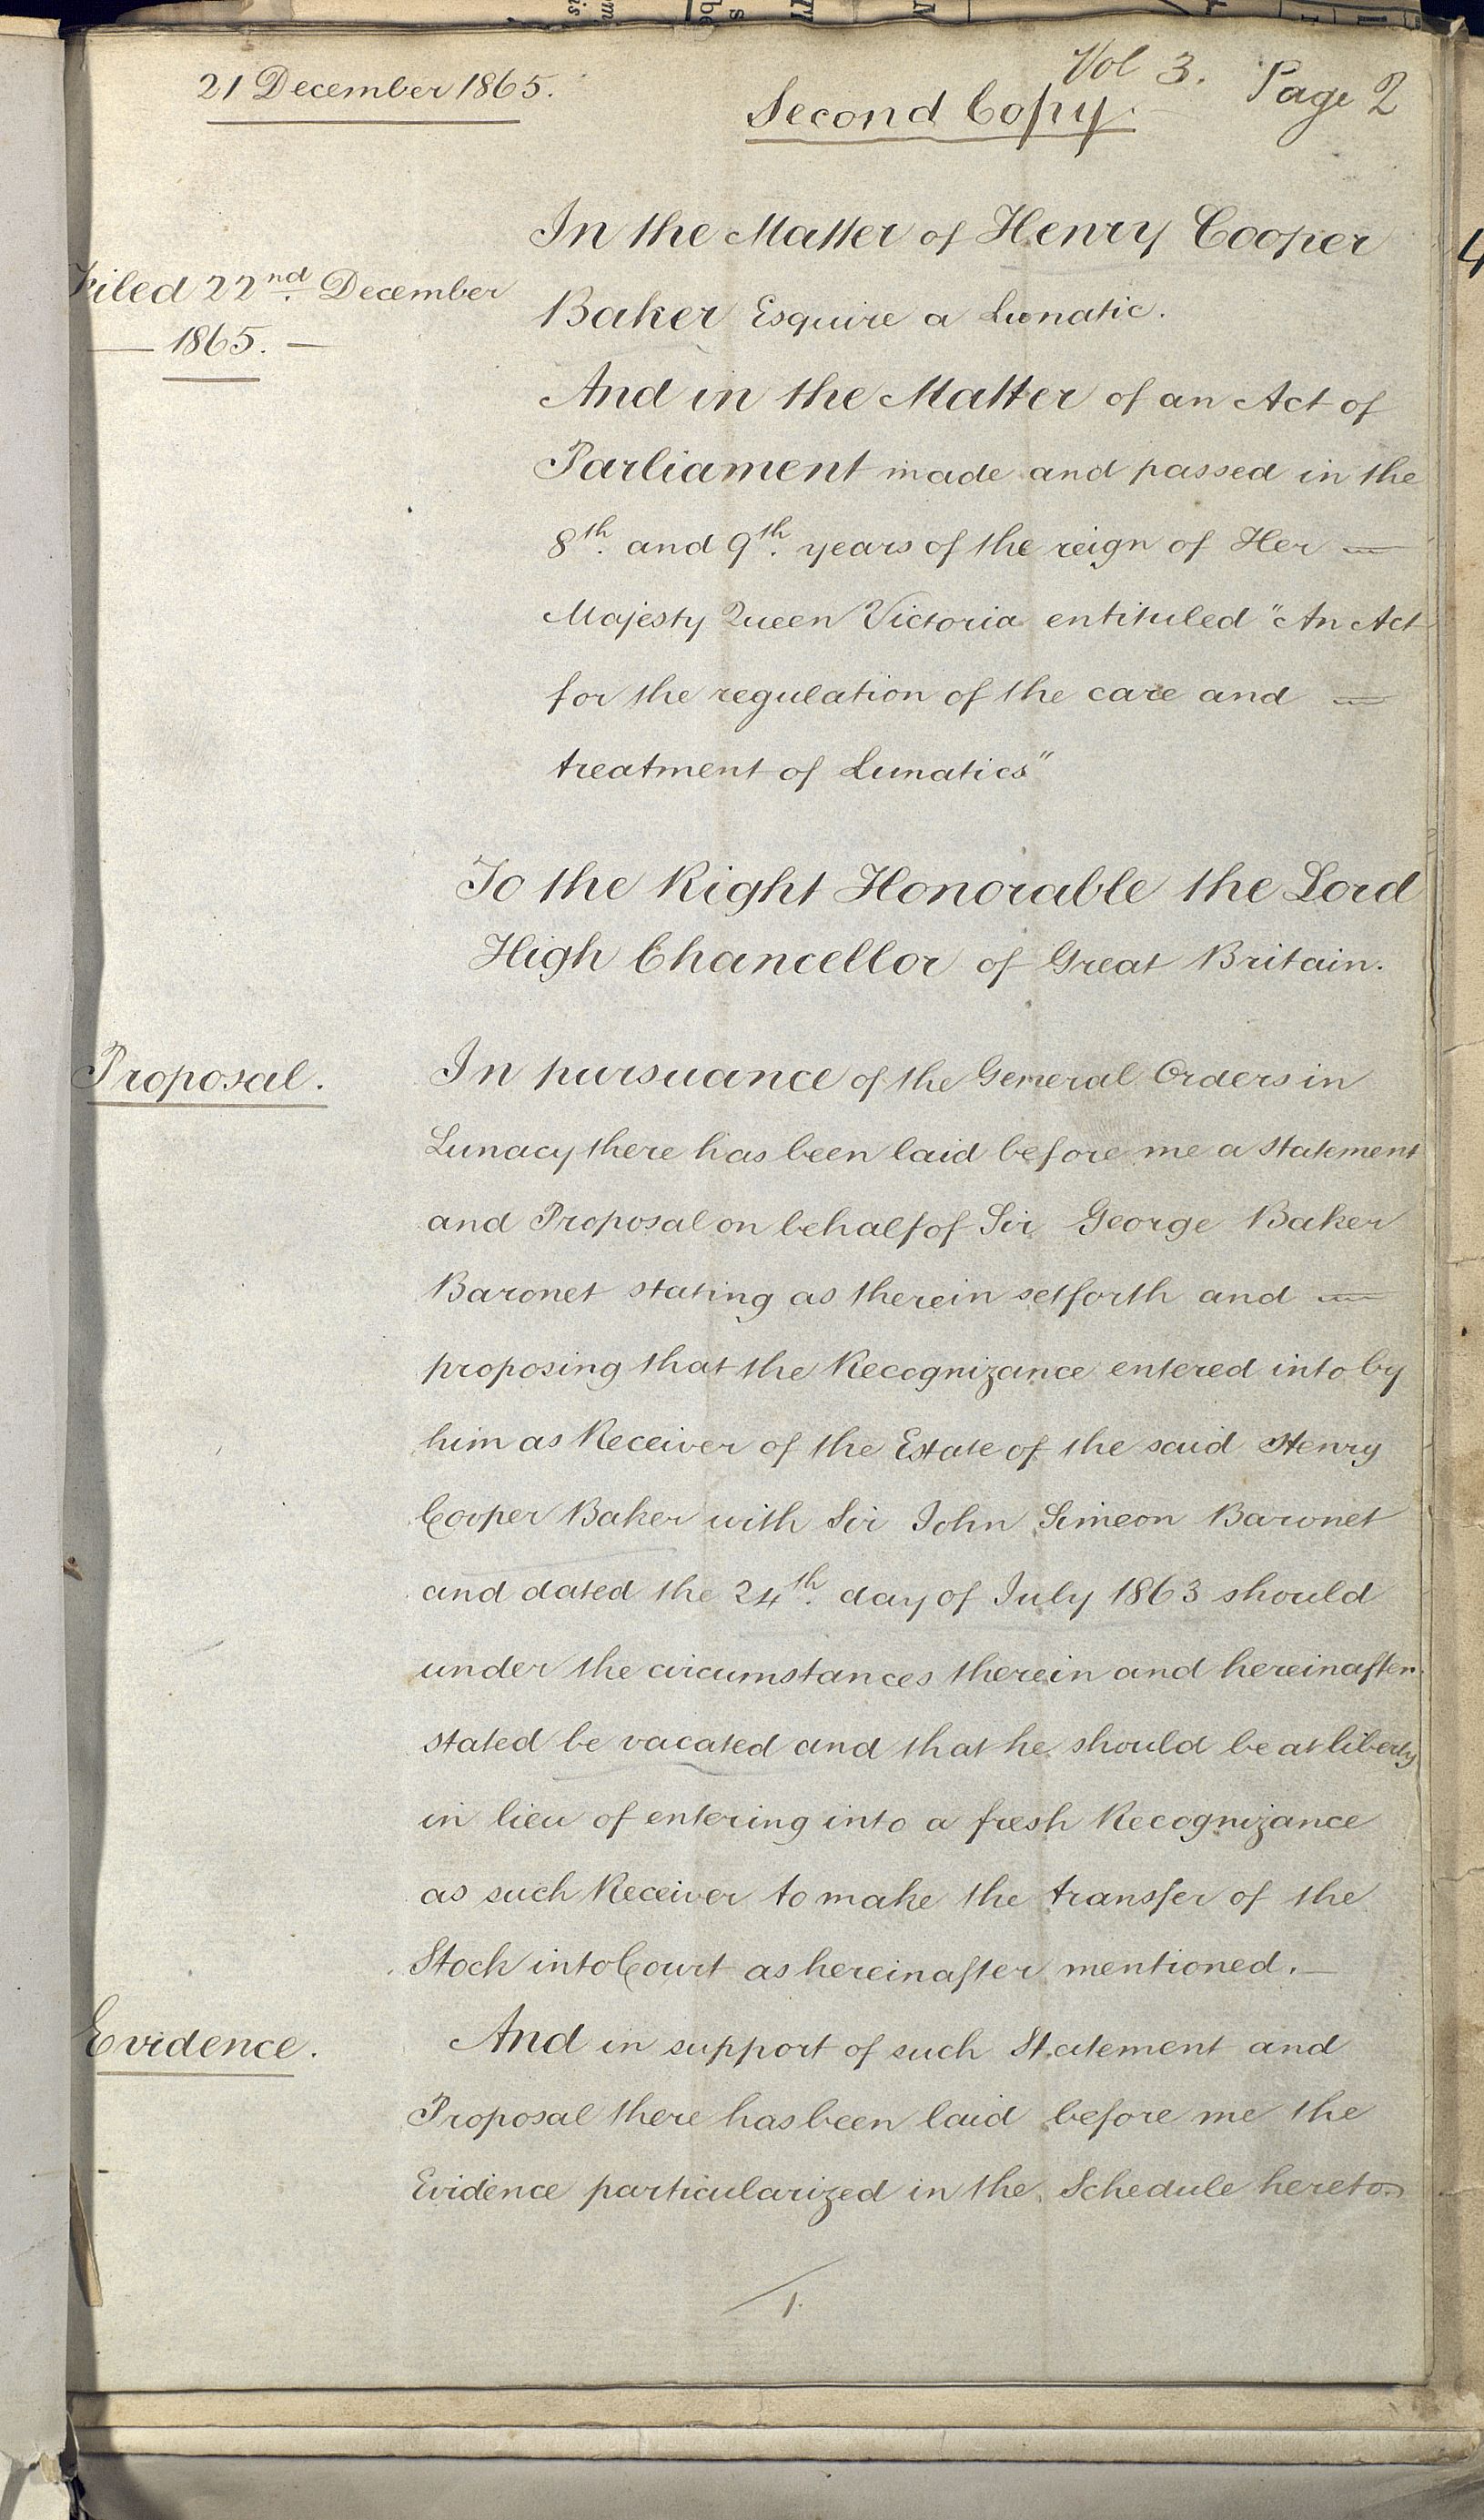 21 December 1865.
Vol 3. Page 2
Second Copy.
Filed 22nd. December
— 1865. —
In the Matter of Henry Cooper
Baker Esquire a Lunatic.
And in the Matter of an Act of
Parliament made and passed in the
8th. and 9th. years of the reign of Her —
Majesty Queen Victoria entituled "An Act
for the regulation of the care and —
treatment of Lunatics"
To the Right Honorable the Lord
High Chancellor of Great Britain.
Proposal.
In pursuance of the General Orders in
Lunacy there has been laid before me a statement
and Proposal on behalf of Sir George Baker
Baronet stating as therein setforth and —
proposing that the Recognizance entered into by
him as Receiver of the Estate of the said Henry
Cooper Baker with Sir John Simeon Baronet
and dated the 24th. day of July 1863 should
under the circumstances therein and hereinafter
stated be vacated and that he should be at liberty
in lieu of entering into a fresh Recognizance
as such Receiver to make the transfer of the
Stock into Court as hereinafter mentioned. —
Evidence.
And in support of such Statement and
Proposal there has been laid before me the
Evidence particularized in the Schedule hereto.
1.